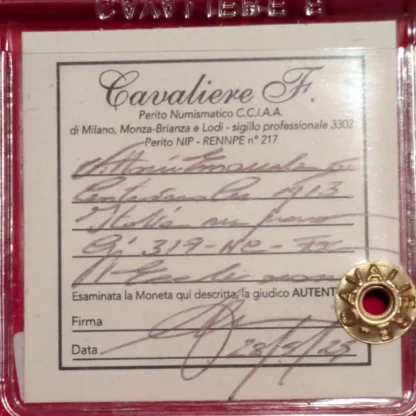 CAVALIERE F
Cavaliere F.
Perito Numismatico C.C.I.A.A.
di Milano, Monza-Brianza e Lodi - sigillo professionale 3302
Perito NIP - RENNPE n° 217
Vittorio Emanuele
1913
Italia su prora
Gi 319-NC-
Esaminata la Moneta qui descritta, la giudico AUTENT
Firma
Data 28/9/25
CAVALIE